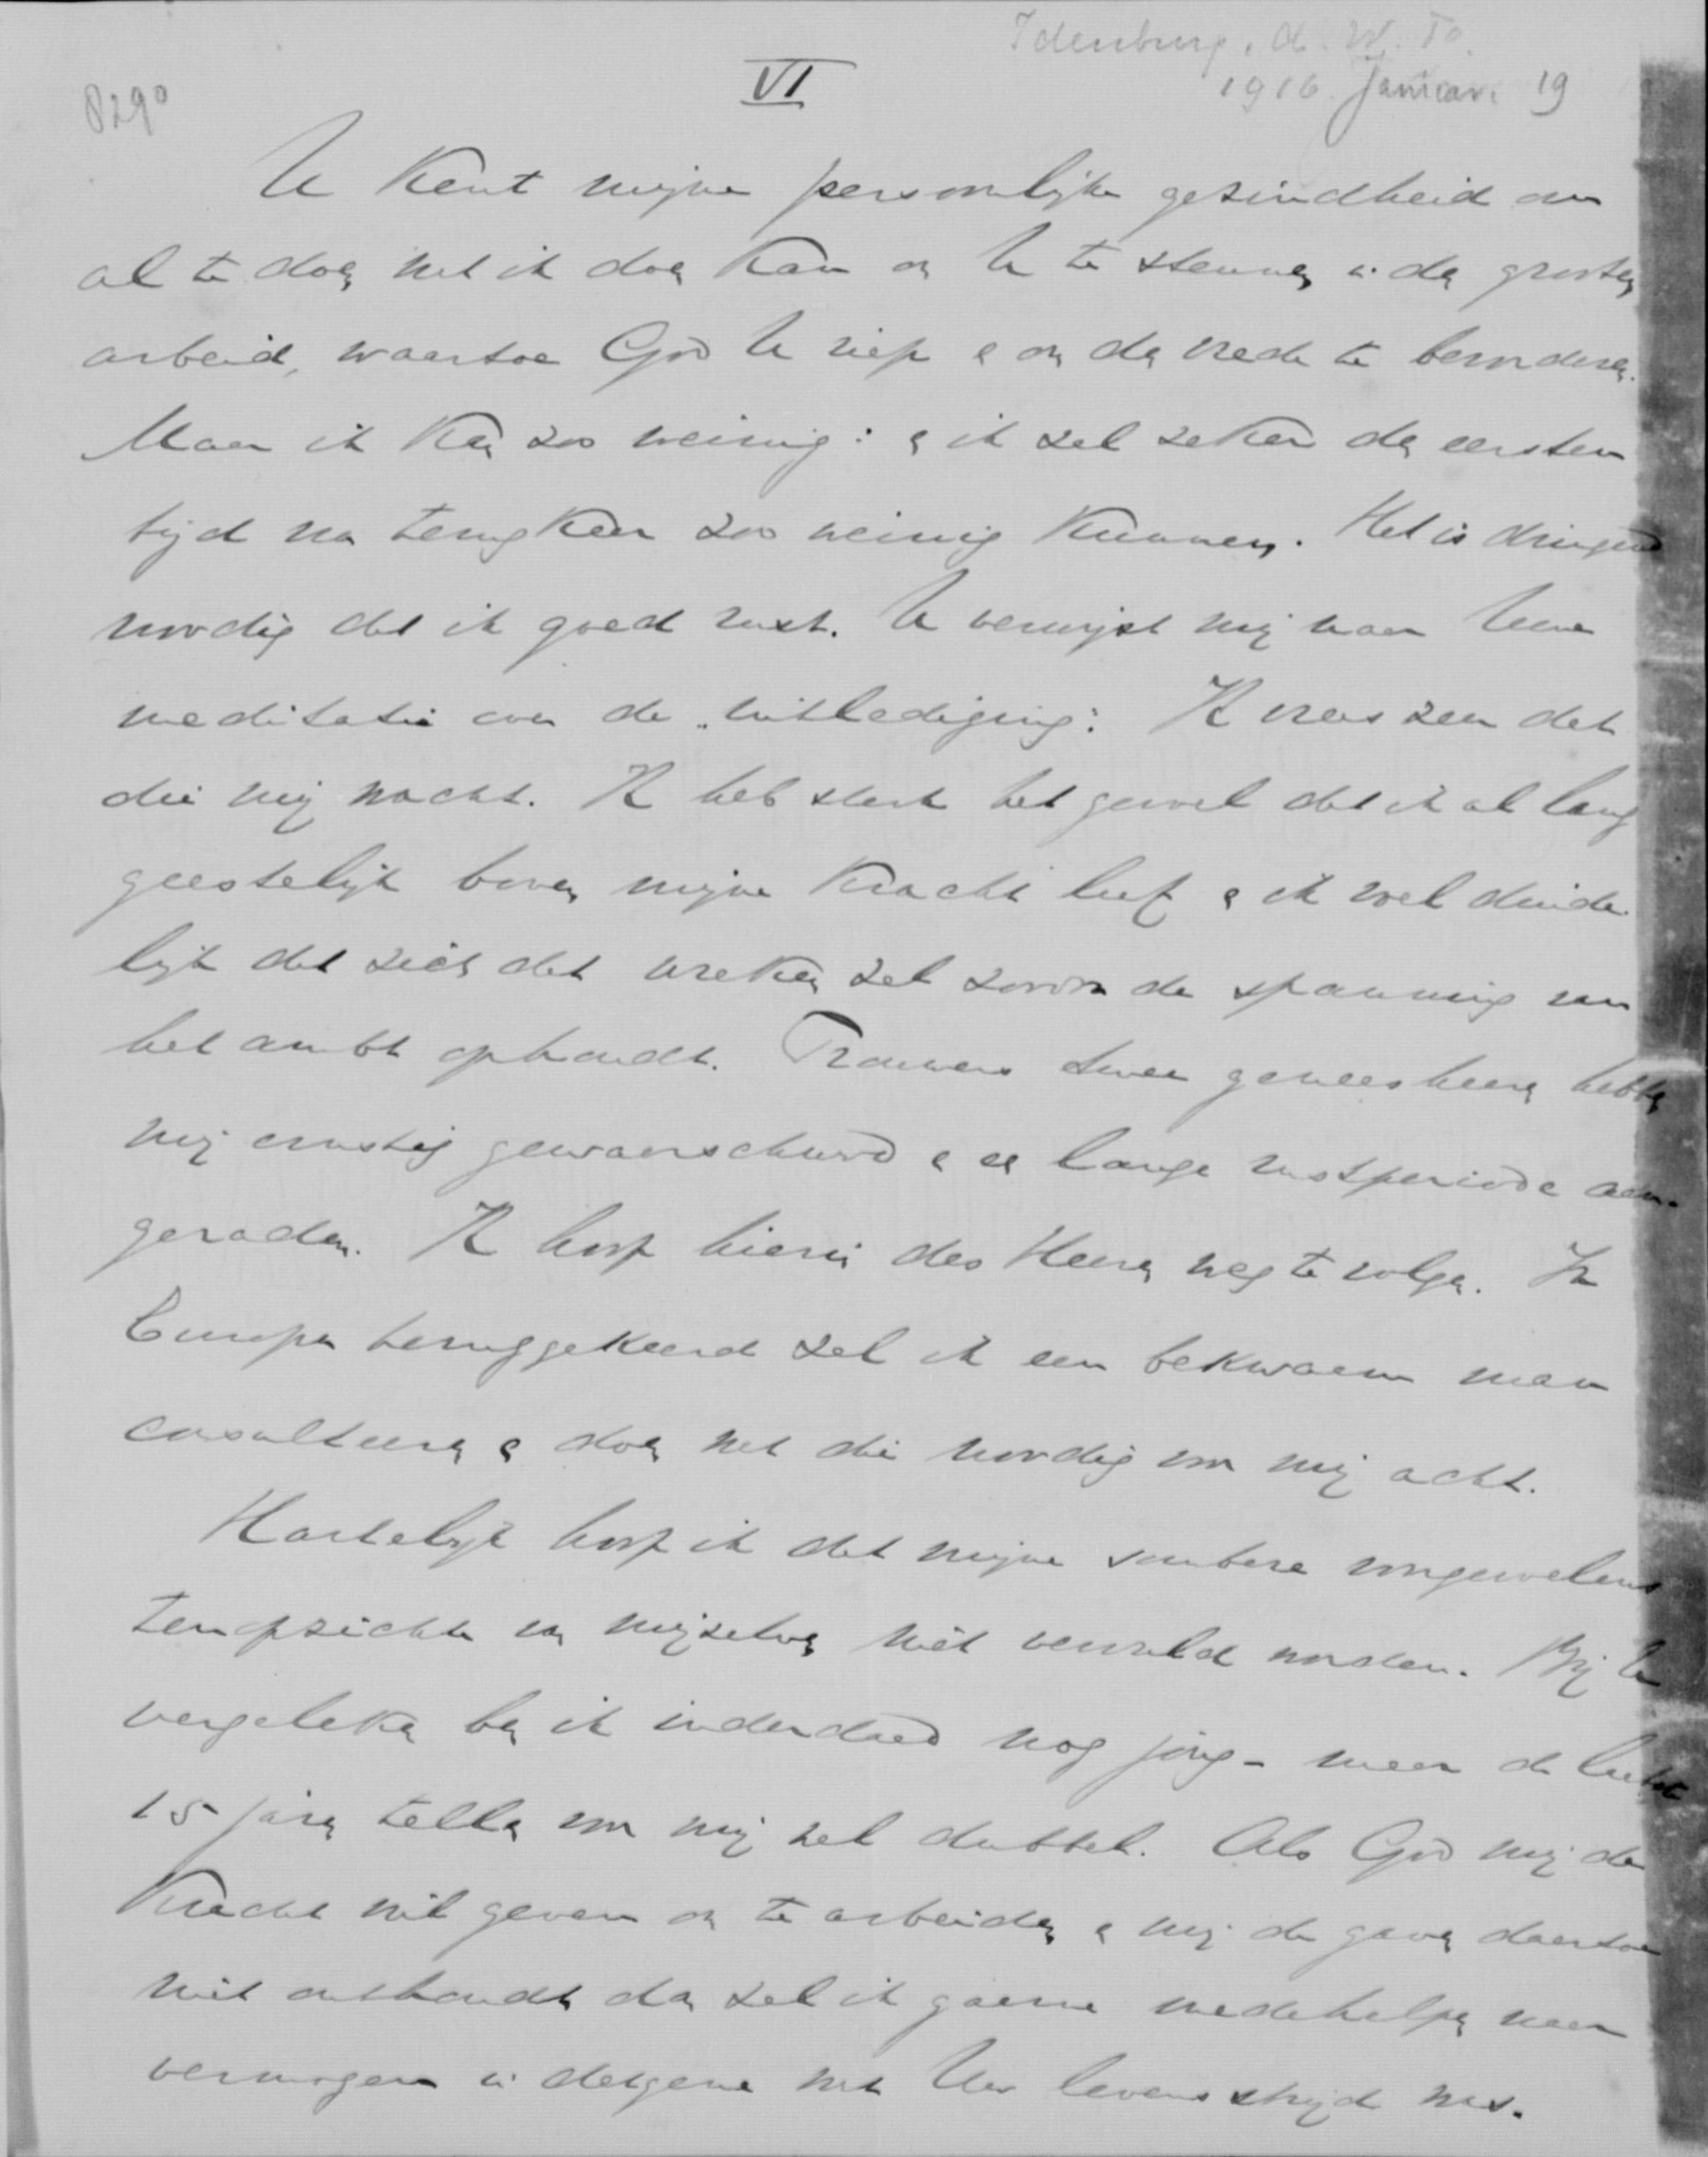 Idenburg, A. W. F.
VI
1916 Januari 19
8290
U kent mijne persoonlijke gezindheid om
al te doen wat ik doen kan om U te steunen in den grooten
arbeid, waartoe God U riep en om den vrede te bevorderen.
Maar ik kan zoo weinig: en ik zal zeker den eersten
tijd na terugkeer zoo weinig kunnen. Het is dringend
noodig dat ik goed rust. U verwijst mij naar Uwe
meditatie over de "uitlediging": Ik vrees zeer dat
die mij wacht. Ik heb sterk het gevoel dat ik al lang
geestelijk boven mijne kracht leef en ik voel duide
lijk dat zich dat wreken zal zoodra de spanning van
het ambt ophoudt. Trouwens twee geneesheeren hebben
mij ernstig gewaarschuwd en een lange rustperiode aan-
geraden. Ik hoop hierin des Heeren weg te volgen. In
Europa teruggekeerd zal ik een bekwaam man
consulteeren en doen wat die noodig voor mij acht.
Hartelijk hoop ik dat mijne sombere voorgevoelens
ten opzichte van mijzelven niet vervuld worden. Bij U
vergeleken ben ik inderdaad nog jong - maar de laatste
15 jaren tellen voor mij wel dubbel. Als God mij de
kracht wil geven om te arbeiden en mij de gaven daartoe
niet onthoudt dan zal ik gaarne medehelpen naar
vermogen in datgene wat Uw levensstrijd was.